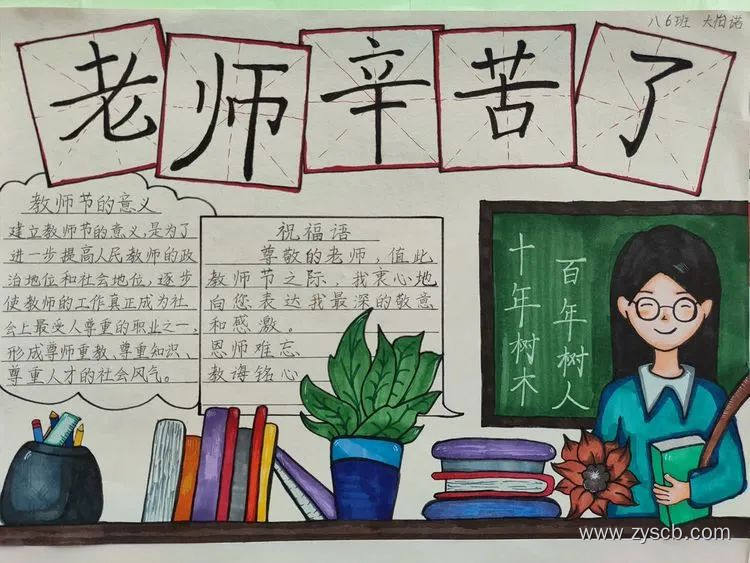 八6班 大怡诺
老师辛苦了
教师节的意义
建立教师节的意义,是为了
进一步提高人民教师的政
治地位和社会地位,逐步
使教师的工作真正成为社
会上最受人尊重的职业之一,
形成尊师重教、尊重知识、
尊重人才的社会风气。
祝福语
尊敬的老师,值此
教师节之际,我衷心地
向您表达我最深的敬意
和感激。
恩师难忘
教诲铭心
十年树木
百年树人
www.zyscb.com